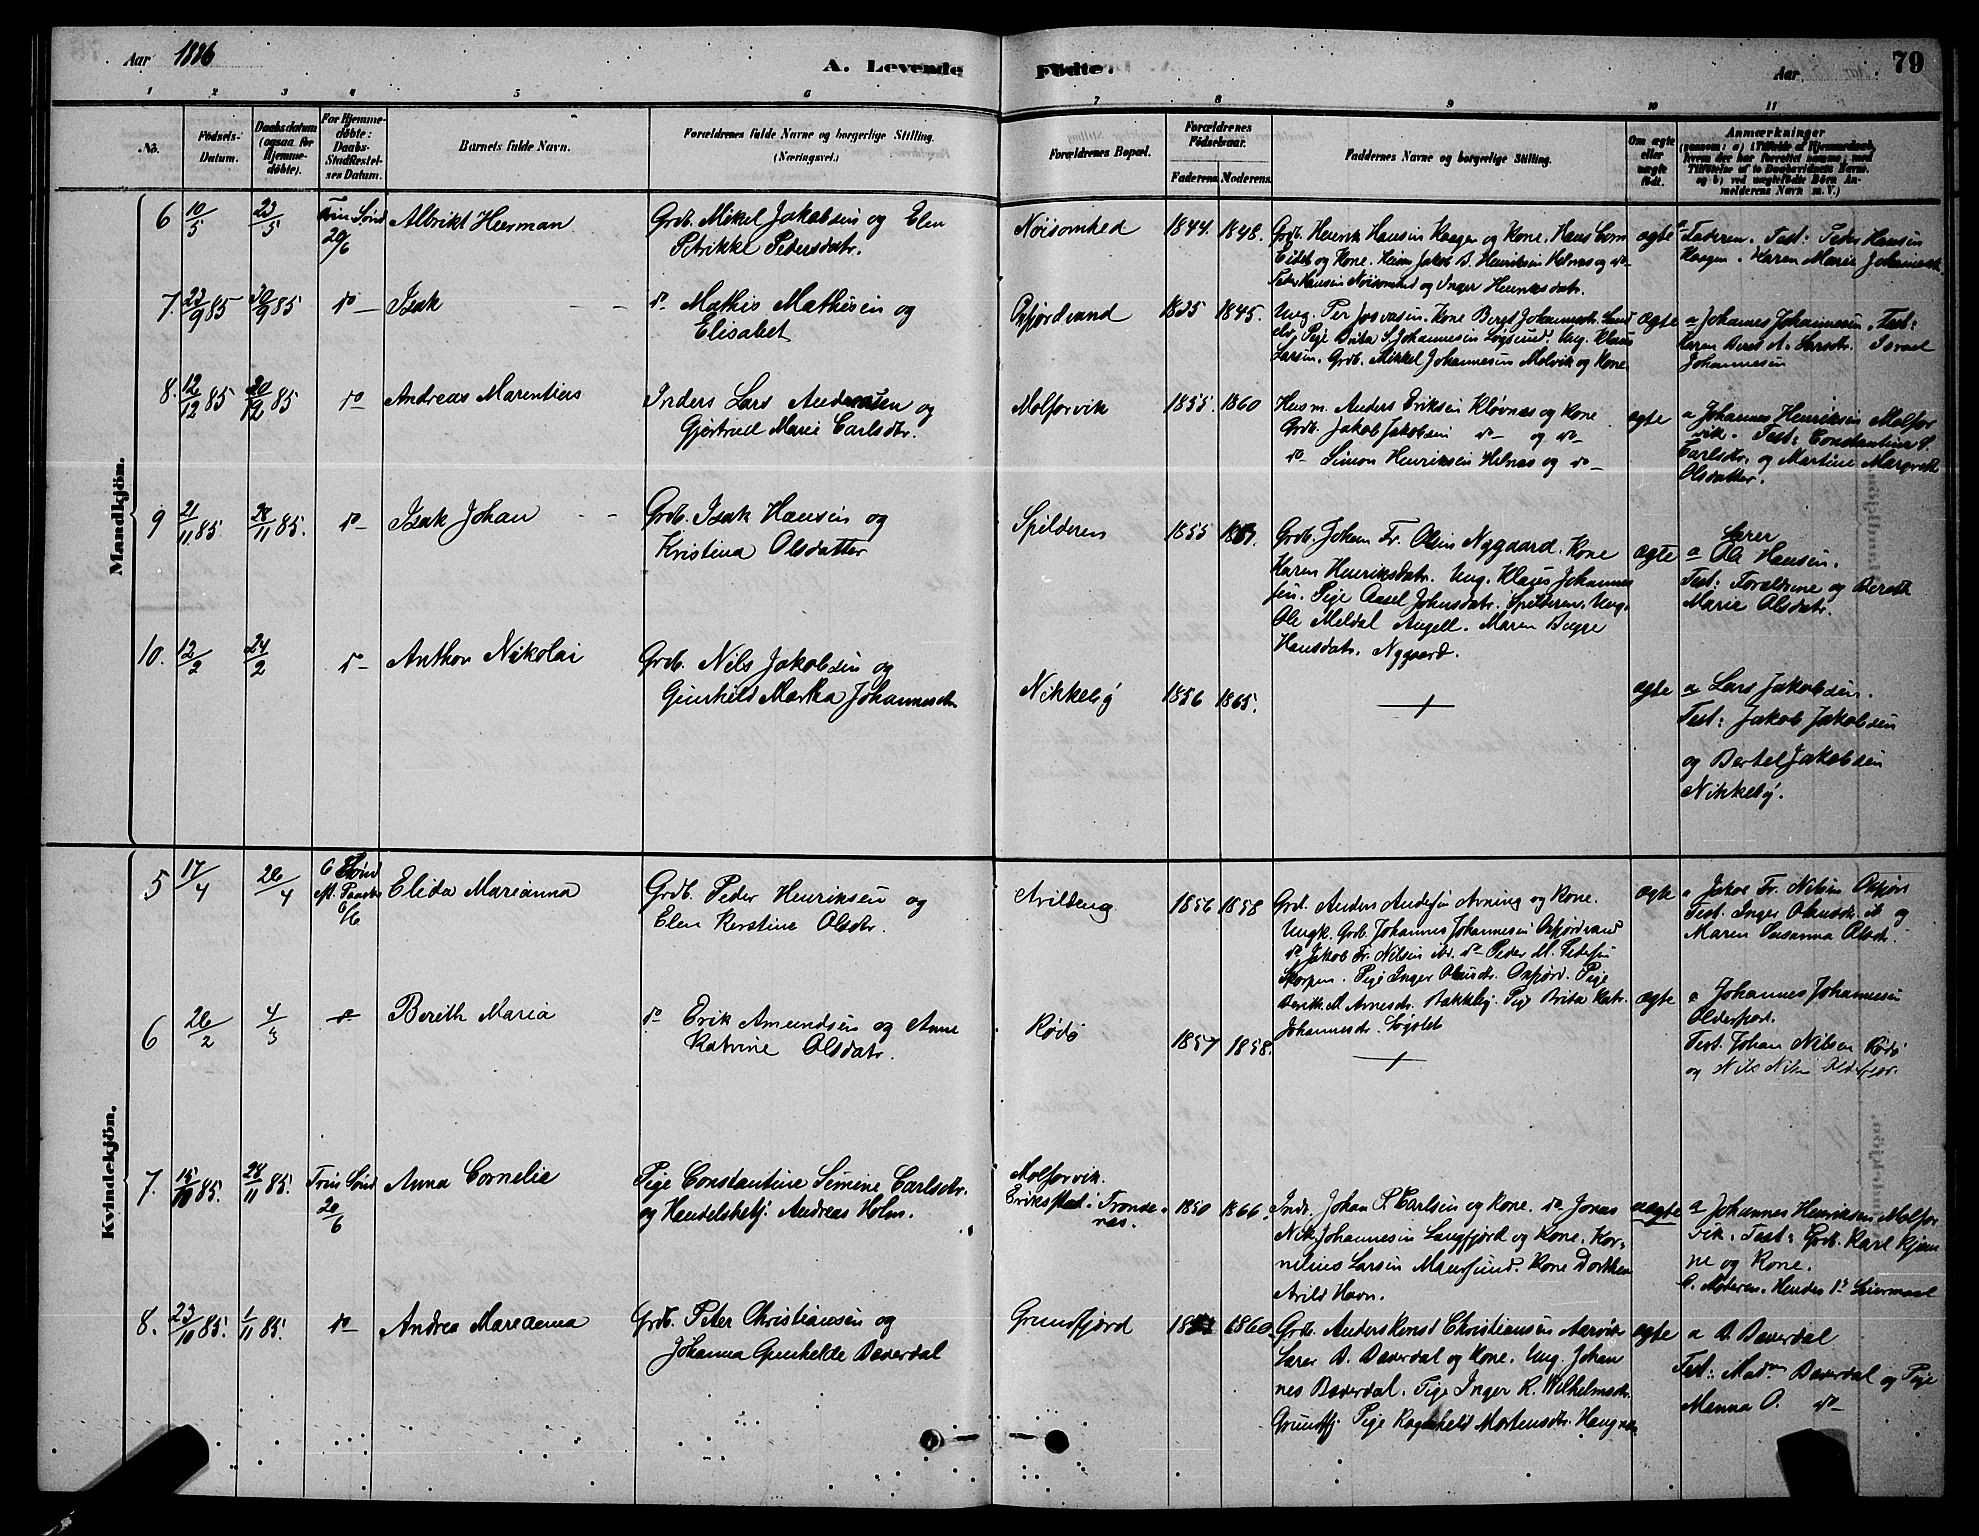 Aar 1886
A. Levende Födte.
Aar
79
1 2 3 4 5 6 7 8 9 10 11
No.
Födsels-Datum.
Daabsdatum (ogsaa for Hjemmedöbte).
For Hjemmedöbte: Daabs-Stadfæstelses Datum.
Barnets fulde Navn.
Forældrenes fulde Navne og borgerlige Stilling. (Næringsvei.)
Forældrenes Bopæl.
Forældrenes Födselsaar.
Faderens. Moderens.
Faddernes Navne og borgerlige Stilling.
Om ægte eller uægte födt.
Anmærkninger
Mandkjön.
6 10/5 23/5 Trin Sönd 20/6 Albrikt Herman
Grdb. Mikel Jakobsen og Elen
Petrikke Pedersdatr.
Nöisomhed 1844. 1848.
Grdb. Henrik Hansen Kaagen og Kone. Hans Corn
Eidet og Kone.
Peter Hansen Nöisomhed og Inger Henriksdatr.
ægte
Faderen. Test: Peder Hansen
Kaagen. Karen Marie Johannesd.
7. 23/9 85 30/9 85 do Isak
do Mathis Mathisen og
Elisabet
Oxfjordvand 1835 1845.
Ung. Per Josvasen. Kone Beret Johannesdtr.
Pige Brita S. Johannesen Lögsund. Ung. Klaus
Larsen. Grdb. Mikkel Johannesen Molvik og Kone
ægte
a Johannes Johannesen. Test:
Karen Beret A. Larsdtr. Israel
Johannesen
8. 12/12 85 20/12 85 do Andreas Marentius
Inders Lars Andersen og
Gjertrud Marie Carlsdtr.
Molforvik 1855. 1860
Husm. Anders Eriksen Klövnæs og Kone
Grdb. Jakob Jakobsen do og do
do Simon Henriksen Helnæs og do
ægte
a Johannes Henriksen Molfor
vik. Test: Constantine S.
Carlsdtr. og Martine Margreth
Olsdatter.
9 21/11 85 28/11 85. do Isak Johan
Grdb. Isak Hansen og
Kristina Olsdatter
Spilderen 1855
Grdb. Johan Fr. Olsen Nygaard. Kone
Karen Henriksdatr. Ung. Klaus Johannes
sen. Pige Aasel Johnsdatr. Spilderen. Ung.
Ole Meldal Angell. Maren Beппe
Hansdatr. Nygaard.
ægte
Lærer
a Ole Hansen.
Test: Forældrene og Bereth
Marie Olsdatr.
10. 12/2 24/2 do Anthon Nikolai
Grdb. Nils Jakobsen og
Gunhild Martha Johannesdtr
Nikkeby 1856 1865.
ægte
a Lars Jakobsen.
Test: Jakob Jakobsen
og Bertel Jakobsen
Nikkeby.
Kvindekjön.
5 17/4 26/4 6 Sönd eft. Paaske 6/6 Elida Marianna
Grdb. Peder Henriksen og
Elen Kerstine Olsdtr.
Arildeng 1856 1858
Grd. Anders Andersen Arning og Kone.
Ungk. Grdb. Johannes Johannesen Oxfjordvand
do Jakob Fr. Nilsen ibd. do Peder M. Pedersen
Skorpen. Pige Inger Olausdtr. Oxfjord. Pige
Berith M. Arnesdtr. Bakkeby. Pige Brita Katr.
Johannesdtr. Lögslet
ægte
a Jakob Fr. Nilsen Oxfjord
Test. Inger Olausdtr. ib og
Maren Susanna Olsdtr.
6 26/2 4/3 do Bereth Maria
do Erik Amundsen og Anne
Katrine Olsdatr.
Rödö 1857 1858.
ægte
a Johannes Johannesen
Olderfjord.
Test. Johan Nilsen Rödö
og Nils Nilsen Olderfjor.
7. 15/10 85. 28/11 85. Trin Sönd 20/6 Anna Cornelie
Pige Constantine Semine Carlsdtr.
og Handelsbetj. Andreas Holm.
Molforvik.
Eriksstad i Trondenæs. 1850 1866.
Inds. Johan P. Carlsen og Kone. do Jonas
Nik. Johannesen Langfjord og Kone. Kor-
nelius Larsen Maursund. Kone Dorthea
Arild Havn.
uægte
a Johannes Henriksen Molfor
vik. Test: Grdb. Karl Kjem
ne og Kone.
b. Moderen. Hendes 1ste Leiermaal
8. 23/10 85. 1/11 85. do Andrea Mareanna
Grdb. Peter Christiansen og
Johanna Gunhilde Baverdal
Grundfjord 1860
Grdb. Anders Konst Christiansen Aarvik
Lærer B. Baverdal og Kone. Ung. Johan
nes Baverdal. Pige Inger K. Wilhelmsdtr.
Grundfj. Pige Ragnhild Mortensdtr. Haugnæs
ægte
a B. Baverdal
Test: Mad. Baverdal og Pige
Menna O. do